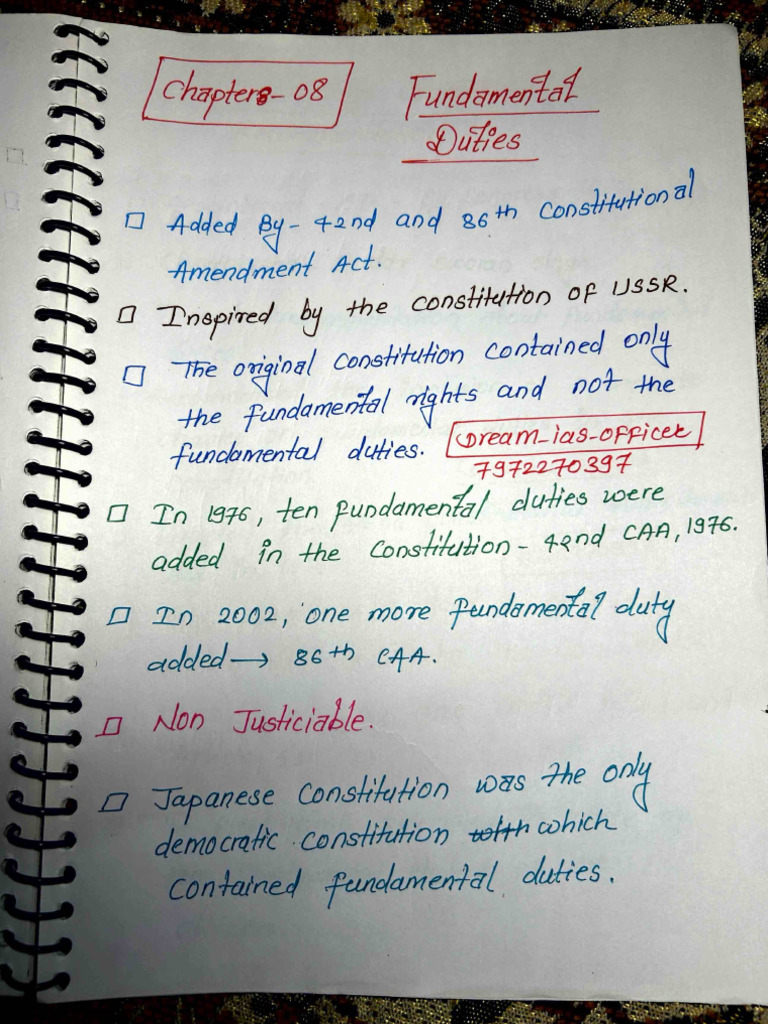 Chapters-08
Fundamental
Duties
Added By- 42nd and 86th Constitutional
Amendment Act.
Inspired by the constitution of USSR.
The original constitution contained only
the fundamental rights and not the
fundamental duties.
Dream_ias_officer
7972270397
In 1976, ten fundamental duties were
added in the Constitution - 42nd CAA, 1976.
In 2002, one more fundamental duty
added → 86th CAA.
Non Justiciable.
Japanese Constitution was the only
democratic constitution with which
contained fundamental duties.